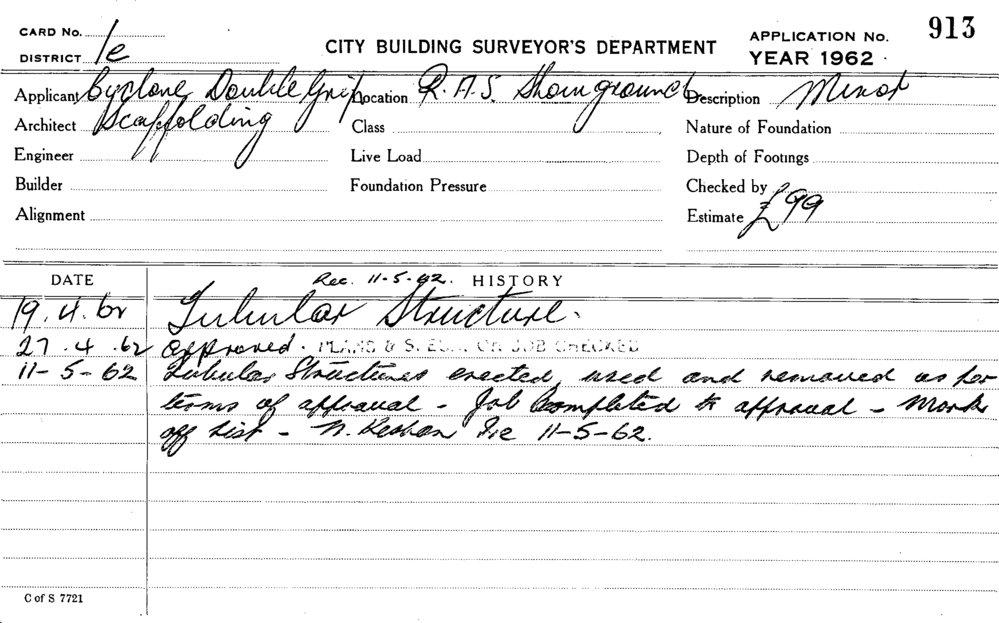 CARD No.
DISTRICT 1e
CITY BUILDING SURVEYOR'S DEPARTMENT
APPLICATION No. 913
YEAR 1962
Applicant Cyclone Double Grip Location R.A.S. Showground Description Minor
Architect Scaffolding Class Nature of Foundation
Engineer Live Load Depth of Footings
Builder Foundation Pressure Checked by
Alignment Estimate £99
DATE Rec. 11-5-62. HISTORY
19.4.62 Tubular Structure.
27.4.62 approved. PLANS & ON JOB CHECKED
11-5-62 Tubular Structures erected, used and removed as per
terms of approval - Job Completed to approval - Mark
off List - N. 1e 11-5-62.
C of S 7721